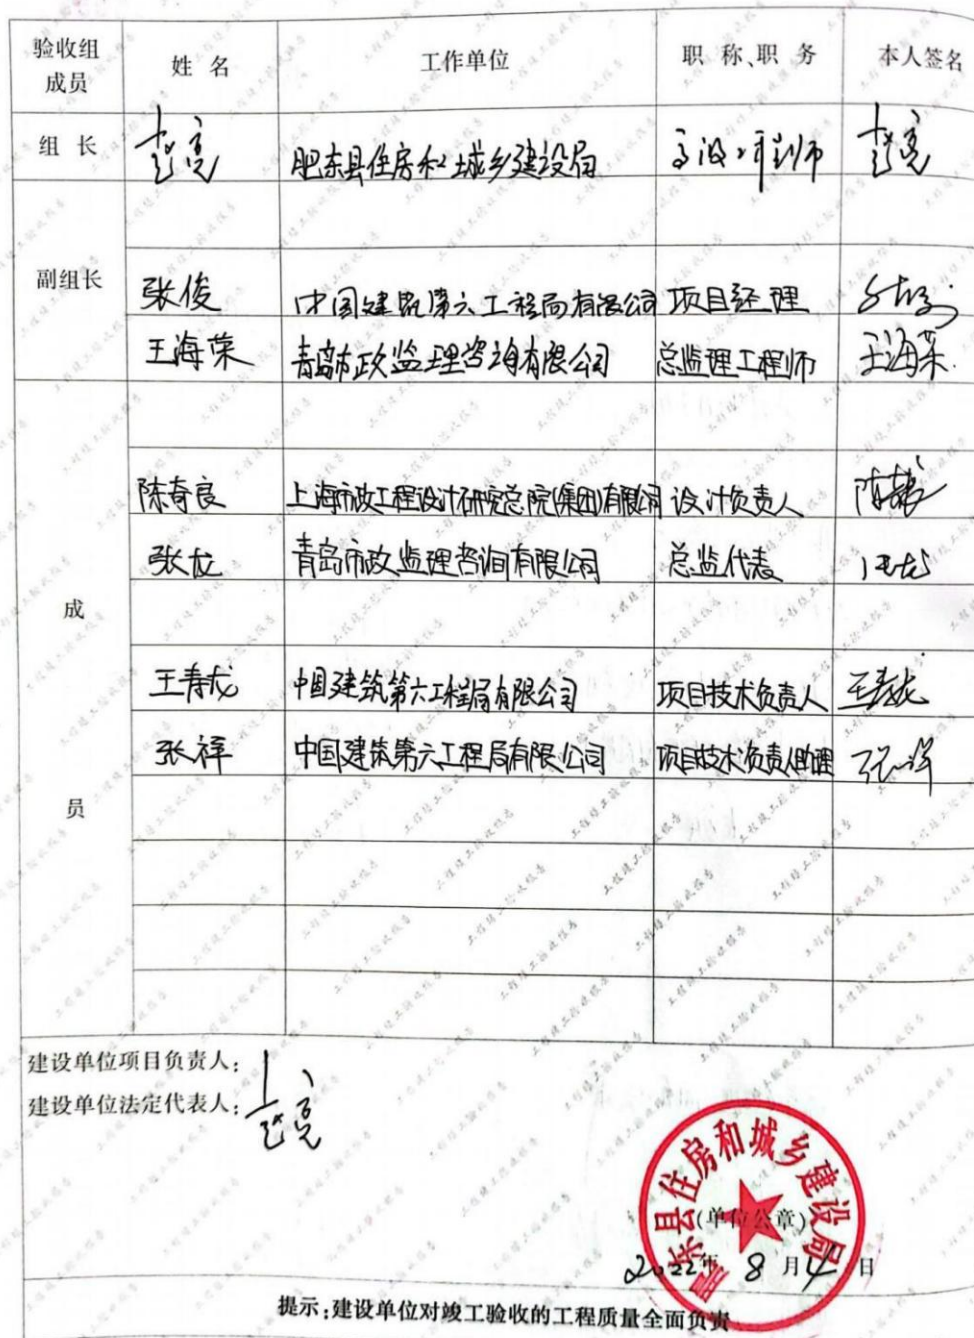 验收组 成员 姓名 工作单位 职称、职务 本人签名
组长 赵亮 肥东县住房和城乡建设局 赵亮
副组长
张俊 中国建筑第六工程局有限公司 项目经理
王海荣 青岛市政监理咨询有限公司 总监理工程师 王海荣
陈奇良 上海市政工程设计研究总院(集团)有限公司 设计负责人
张龙 青岛市政监理咨询有限公司 总监代表 张龙
成
王寿龙 中国建筑第六工程局有限公司 项目技术负责人 王寿龙
张祥 中国建筑第六工程局有限公司 项目技术负责人助理 张祥
员
建设单位项目负责人:
建设单位法定代表人: 赵亮
肥东县住房和城乡建设局
(单位公章)
2022年8月4日
提示:建设单位对竣工验收的工程质量全面负责